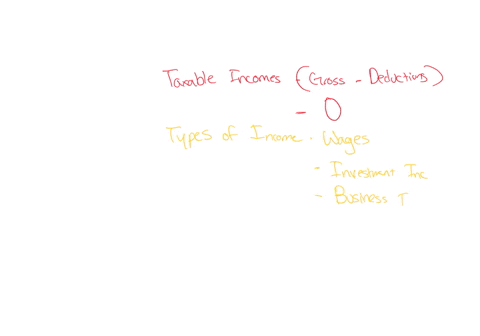 Taxable Incomes - (Gross - Deductions)
- 0
Types of Income - Wages
- Investment Inc
- Business I